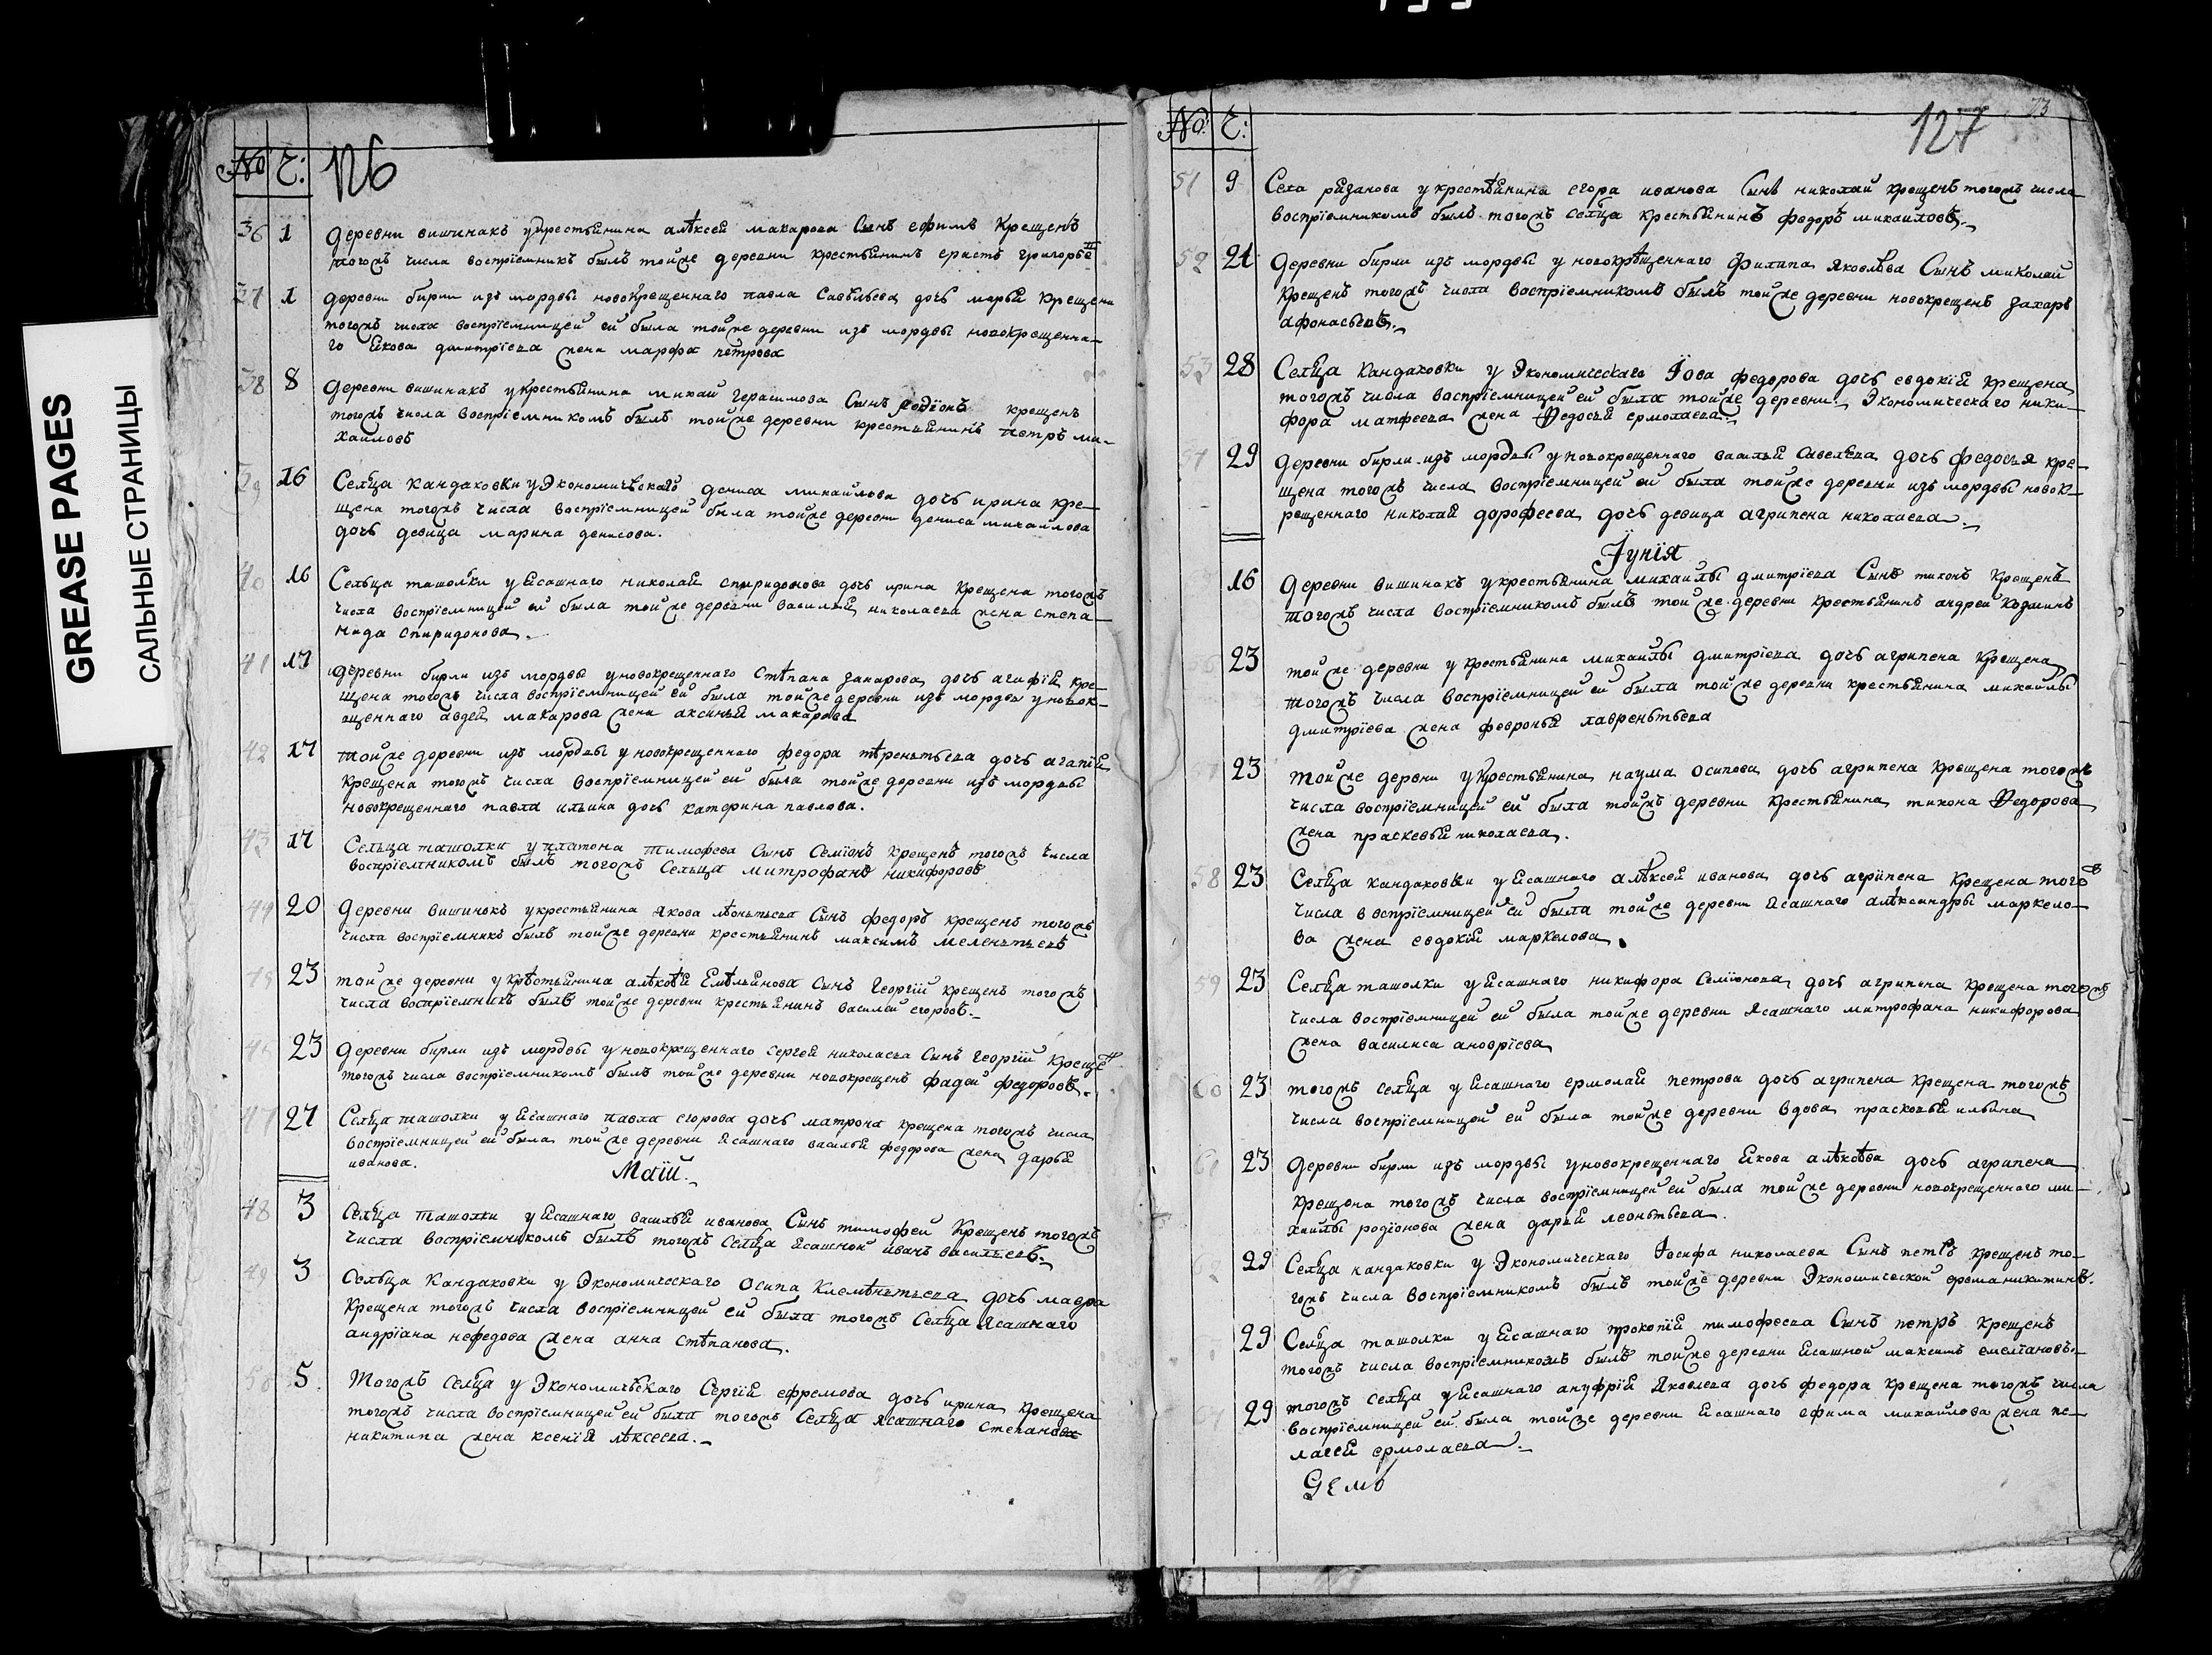 GREASE PAGES
САЛЬНЫЕ СТРАНИЦЫ
№ Č:
126
36 1 деревни вишинакъ укрестьянина алѣксея макарова Сынъ ефимъ Крещенъ
тогожъ числа воспрїемникъ былъ тойже деревни крестьянинъ ерастъ григорьѣ
37 1 деревни бирли изъ мордвы новокрещеннаго павла савѣльева дочь марья крещена
тогожъ числа воспрїемницей ей была тойже деревни изъ мордвы новокрещенна-
го якова дмитрїева жена марфа петрова
38 8 деревни вишинакъ укрестьянина михаи герасимова Сынъ родїонъ крещенъ
тогожъ числа воспрїемникомъ былъ тойже деревни крестьянинъ петръ ми-
хаиловъ
39 16 Селца кандаковки уЭкономическаго дениса михаилова дочь ирина кре-
щена тогожъ числа воспрїемницей была тойже деревни дениса михаилова
дочь девица марина денисова.
40 16 Сельца ташолки уясашнаго николая спиридонова дочь ирина крещена тогожъ
числа воспрїемницей ей была тойже деревни василья николаева жена степа-
нида спиридонова.
41 17 деревни бирли изъ мордвы уновокрещеннаго стѣпана захарова дочь агафія кре-
щена тогожъ числа воспрїемницей ей была тойже деревни изъ мордвы уновок-
рщеннаго авдея макарова жена аксинья макарова
42 17 тойже деревни изъ мордвы уновокрещеннаго федора тѣреньтьева дочь агапія
крещена тогожъ числа воспрїемницей ей была тойже деревни изъ мордвы
новокрещеннаго павла ильина дочь катерина павлова.
43 17 Сельца ташолки уплатона тимофева Сынъ Семїонъ крещенъ тогожъ числа
воспрїемникомъ былъ тогожъ Сельца митрофанъ никифоровъ
44 20 деревни вишинокъ укрестьянина якова лѣоньтьева Сынъ федоръ крещенъ тогожъ
числа воспрїемникъ былъ тойже деревни крестьянинъ максимъ меленьтьевъ
45 23 тойже деревни укрѣстьянина алѣкѣѣя Емѣльянова сынъ георгїй крещенъ тогожъ
числа воспрїемникъ былъ тойже деревни крестьянинъ василей егоровъ.
46 23 деревни бирли изъ мордвы уновокрещеннаго сергея николаева Сынъ георгїй крещен
тогожъ числа воспрїемникомъ былъ тойже деревни новокрещенъ фадей федоровъ.
47 27 Селца ташолки уясашнаго павла егорова дочь матрона крещена тогожъ числа
воспрїемницей ей была тойже деревни ясашнаго василья федорова жена дарья
иванова.
Маїй.
48 3 Селца ташолки уясашнаго василья иванова Сынъ тимофей Крещенъ тогожъ
числа воспрїемникомъ былъ тогожъ Селца ясашной иванъ васильевъ.
49 3 Сельца Кандаковки у Экономическаго Осипа клемѣньтьева дочь мавра
Крещена тогожъ числа воспрїемницей ей была тогожъ Селца ясашнаго
андрїана нефедова жена анна стѣпанова.
50 5 Тогожъ селца у Экономическаго Сергїя ефремова дочь ирина крещена
тогожъ числа воспрїемницей ей была тогожъ Селца ясашнаго степанова
никитина жена ксенїя лѣксеева.
№ Č:
127 73
51 9 Села рязанова укрестьянина егора иванова Сынъ николай крещенъ тогожъ числа
воспрїемникомъ былъ тогожъ селца крестьянинъ федоръ михаиловъ.
52 21 деревни бирли изъ мордвы у новокрѣщеннаго филипа яковлѣва Сынъ миколай
Крещенъ тогожъ числа воспрїемникомъ былъ тойже деревни новокрещенъ захаръ
афонасьевъ.
53 28 Селца кандаковки у Экономическаго Їова федорова дочь евдокїя крещена
тогожъ числа воспрїемницей ей была тойже деревни Экономическаго ники-
фора матфеева жена федосья ермолаева.
54 29 деревни бирли изъ мордвы уновокрещеннаго василья савельева дочь федосья кре-
щена тогожъ числа воспрїемницей ей была тойже деревни изъ мордвы новок-
рещеннаго николая дорофеева дочь девица агрипена николаева.
Їунїя
16 деревни вишинакъ укрестьянина михаилы дмитрїева Сынъ тихонъ крещенъ
тогожъ числа воспрїемникомъ былъ тойже деревни крестьянинъ андрей козминъ
56 23 тойже деревни укрестьянина михаилы дмитрїева дочь агрипена Крещена
тогожъ числа воспрїемницей ей была тойже деревни крестьянина михаилы
дмитрїева жена февронья лавреньтьева
57 23 тойже дервни укрестьянина наума осипова дочь агрипена Крещена тогожъ
числа воспрїемницей ей была тойжъ деревни Крестьянина тихона федорова
жена прасковья николаева.
58 23 Селца кандаковки уясашнаго алѣксея иванова дочь агрипена крещена того
числа воспрїемницей ей была тойже деревни ясашнаго алѣксандры маркело-
ва жена евдокїя маркелова.
59 23 Селца ташолки уясашнаго никифора Семїонова дочь агрипена крещена тогожъ
числа воспрїемницей ей была тойже деревни ясашнаго митрофана никифорова
жена василиса
60 23 тогожъ селца уясашнаго ермолая петрова дочь агрипена крещена тогожъ
числа воспрїемницей ей была тойже деревни вдова прасковья ильина
61 23 деревни бирли изъ мордвы уновокрещеннаго якова алѣкѣева дочь агрипена
Крещена тогожъ числа воспрїемницей ей была тойже деревни новокрещеннаго ми-
хаилы родїонова жена дарья леоньтьева.
62 29 Селца кандаковки у Экономическаго Їосифа николаева Сынъ петръ крещенъ то-
гожъ числа воспрїемникомъ былъ тойже деревни Экономической фрема никитинъ.
29 Селца ташолки уясашнаго прокопїя тимофеева Сынъ петръ крещенъ
тогожъ числа воспрїемникомъ былъ тойже деревни ясашной максимъ емелїановъ.
64 29 тогожъ селца уясашнаго ануфрїя яковлева дочь федора крещена тогожъ числа
воспрїемницей ей была тойже деревни ясашнаго ефима михаилова жена пе-
лагея ермолаева.